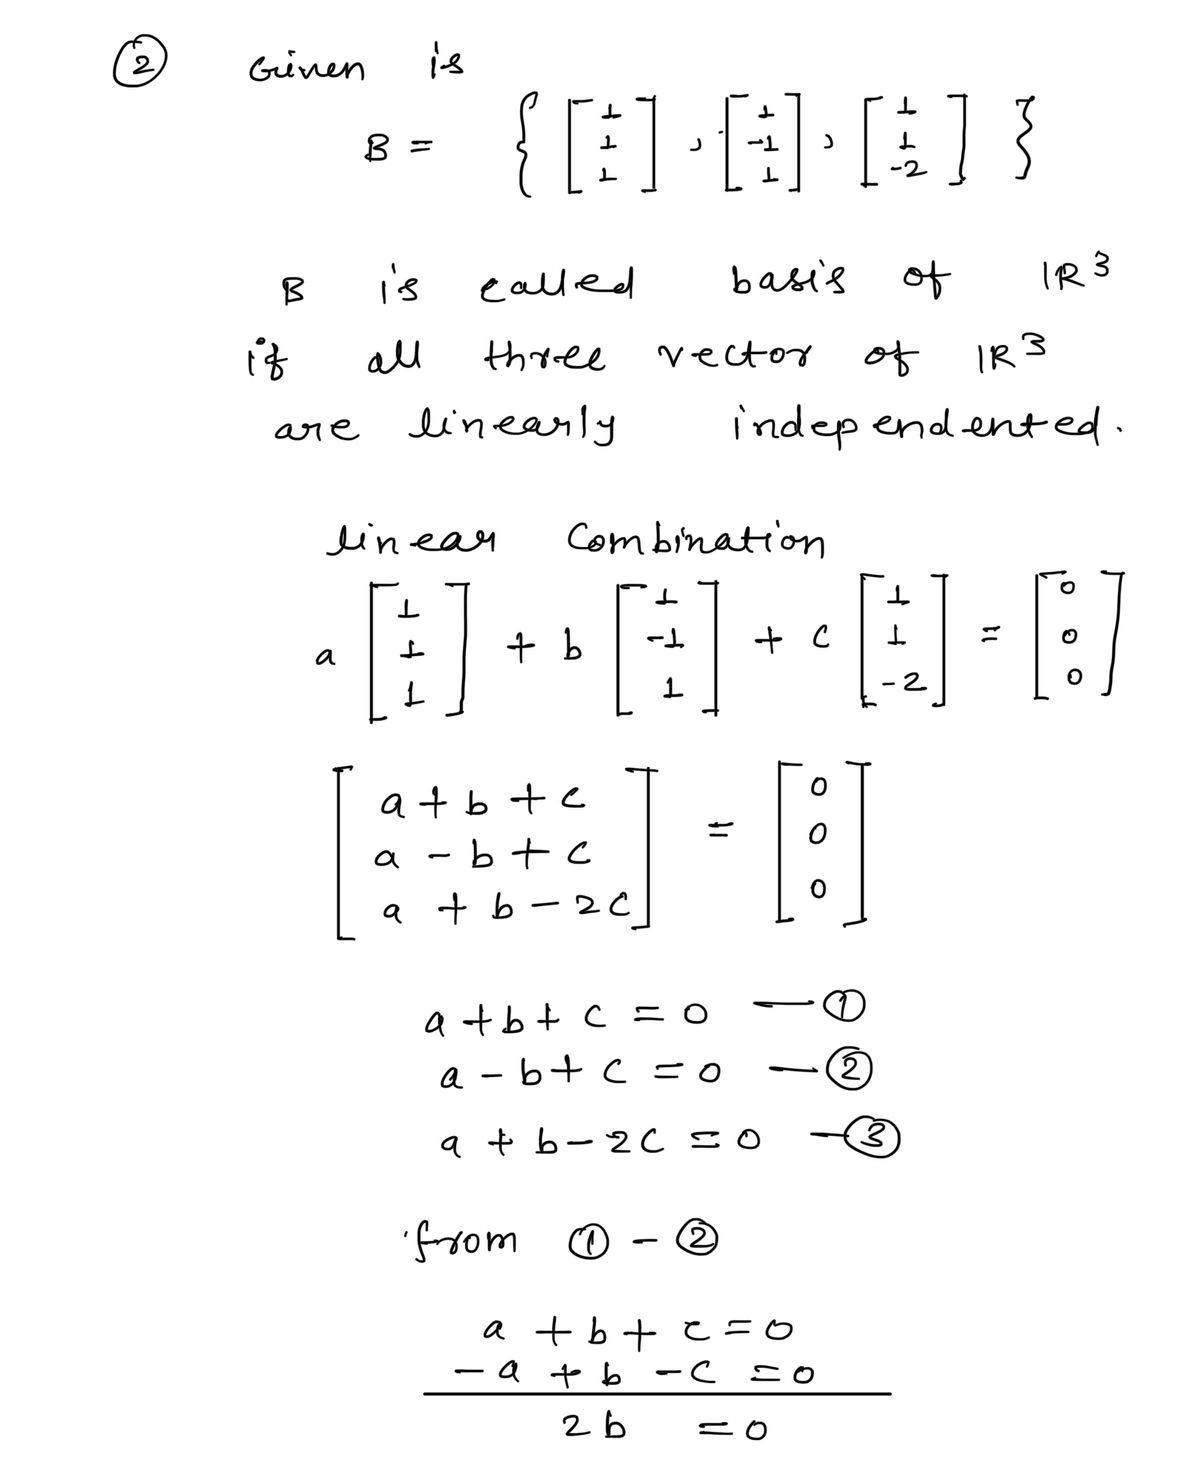 ② Given is
B = { [1 1 1], [1 -1 1], [1 1 -2] }
B is called basis of IR³
if all three vector of IR³
are linearly independented.
linear Combination
a [1 1 1] + b [1 -1 1] + c [1 1 -2] = [0 0 0]
[a + b + c
a - b + c
a + b - 2c] = [0 0 0]
a + b + c = 0 — ①
a - b + c = 0 — ②
a + b - 2c = 0 — ③
from ① - ②
a + b + c = 0
- a + b - c = 0
2b = 0